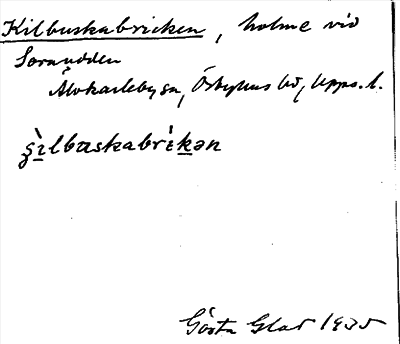 Kilbuskabricken, holme vid
Soraudden
Älvkarleby sn, Örbyhus hd, Upps. l.
g̀ìlbuskabrìkən
Gösta Glad 1935